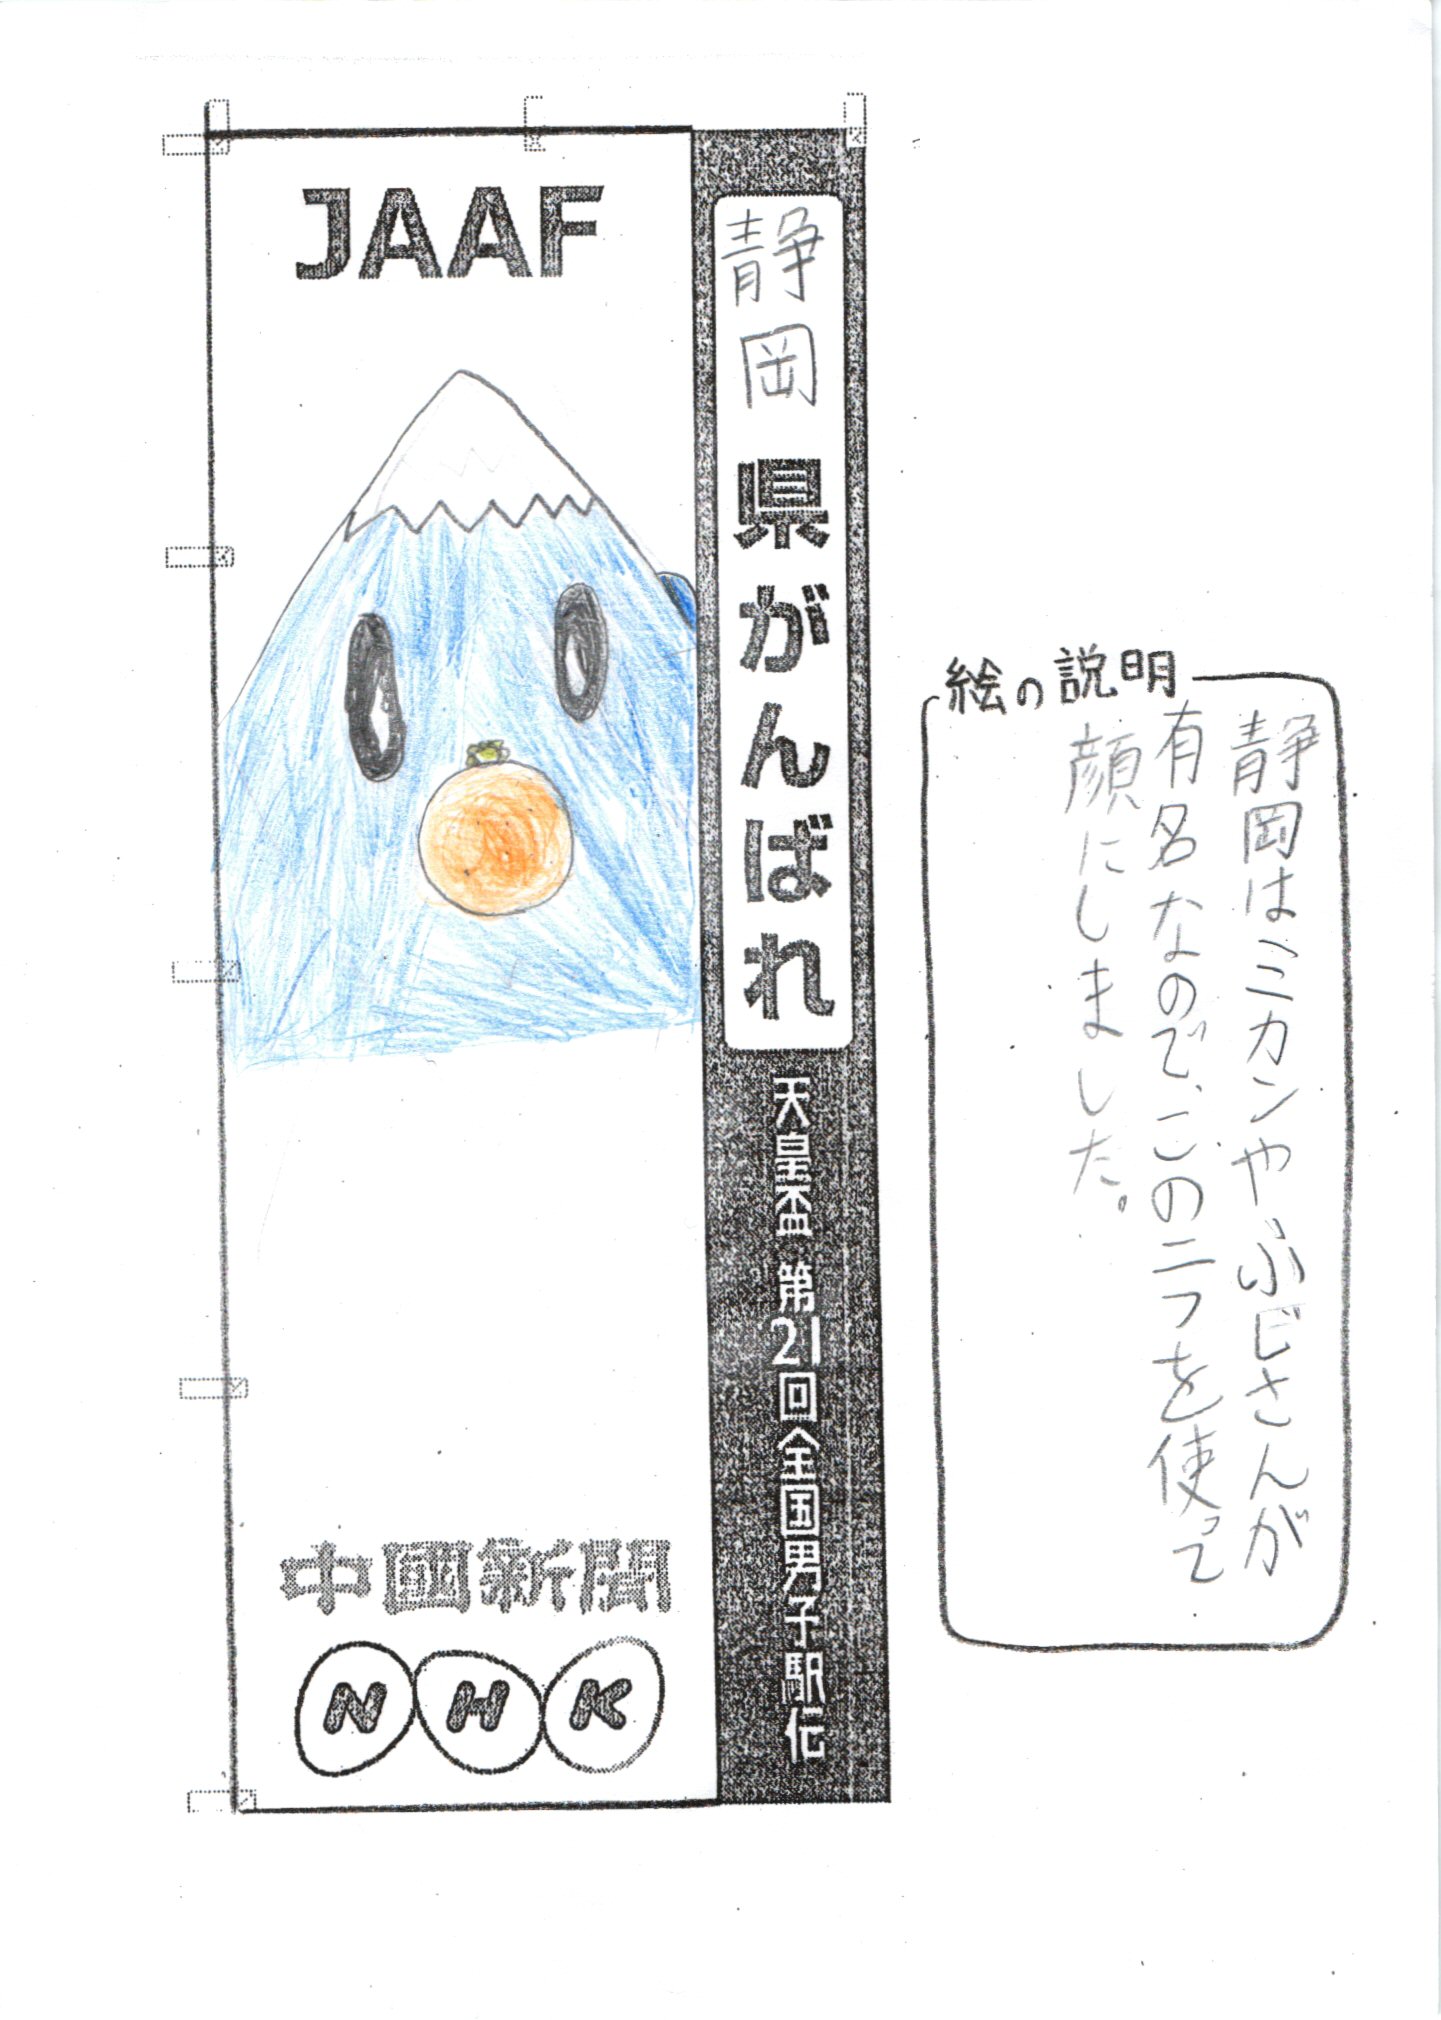 JAAF
静岡県がんばれ
天皇盃 第21回全国男子駅伝
中國新聞
NHK
絵の説明
静岡はミカンやふじさんが
有名なので、この二つを使って
顔にしました。